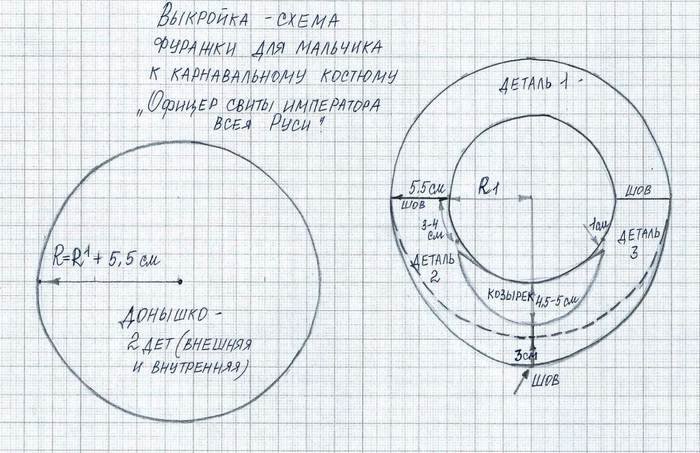 Выкройка - схема
фуражки для мальчика
к карнавальному костюму
„Офицер свиты императора
всея Руси"
R=R1 + 5,5 см
Донышко -
2 дет (внешняя
и внутренняя)
Деталь 1
5.5см
R1
шов
шов
3-4
см
1см
Деталь
2
Деталь
3
Козырек
4,5-5см
3см
шов